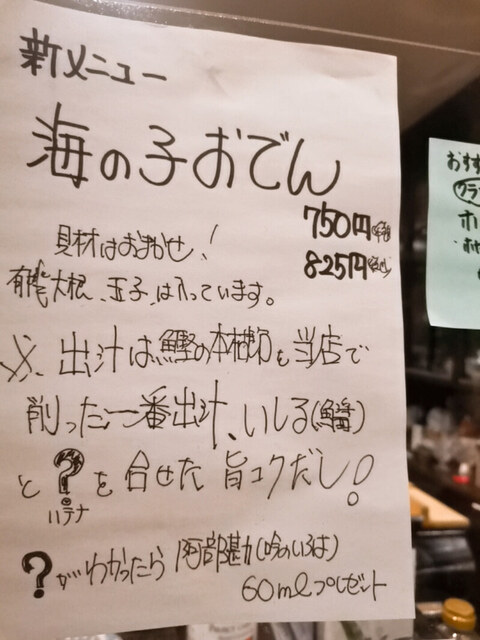 新メニュー
海の子おでん
750円(本体)
825円(税込)
具材はおまかせ!
有機大根、玉子、は入っています。
※出汁は鰹の本枯節を当店で
削った一番出汁、いしる(鰯醤)
と?を合せた旨コクだし!
ハテナ
?がわかったら阿部勘(吟のいろは)
60mlプレゼント
おすす